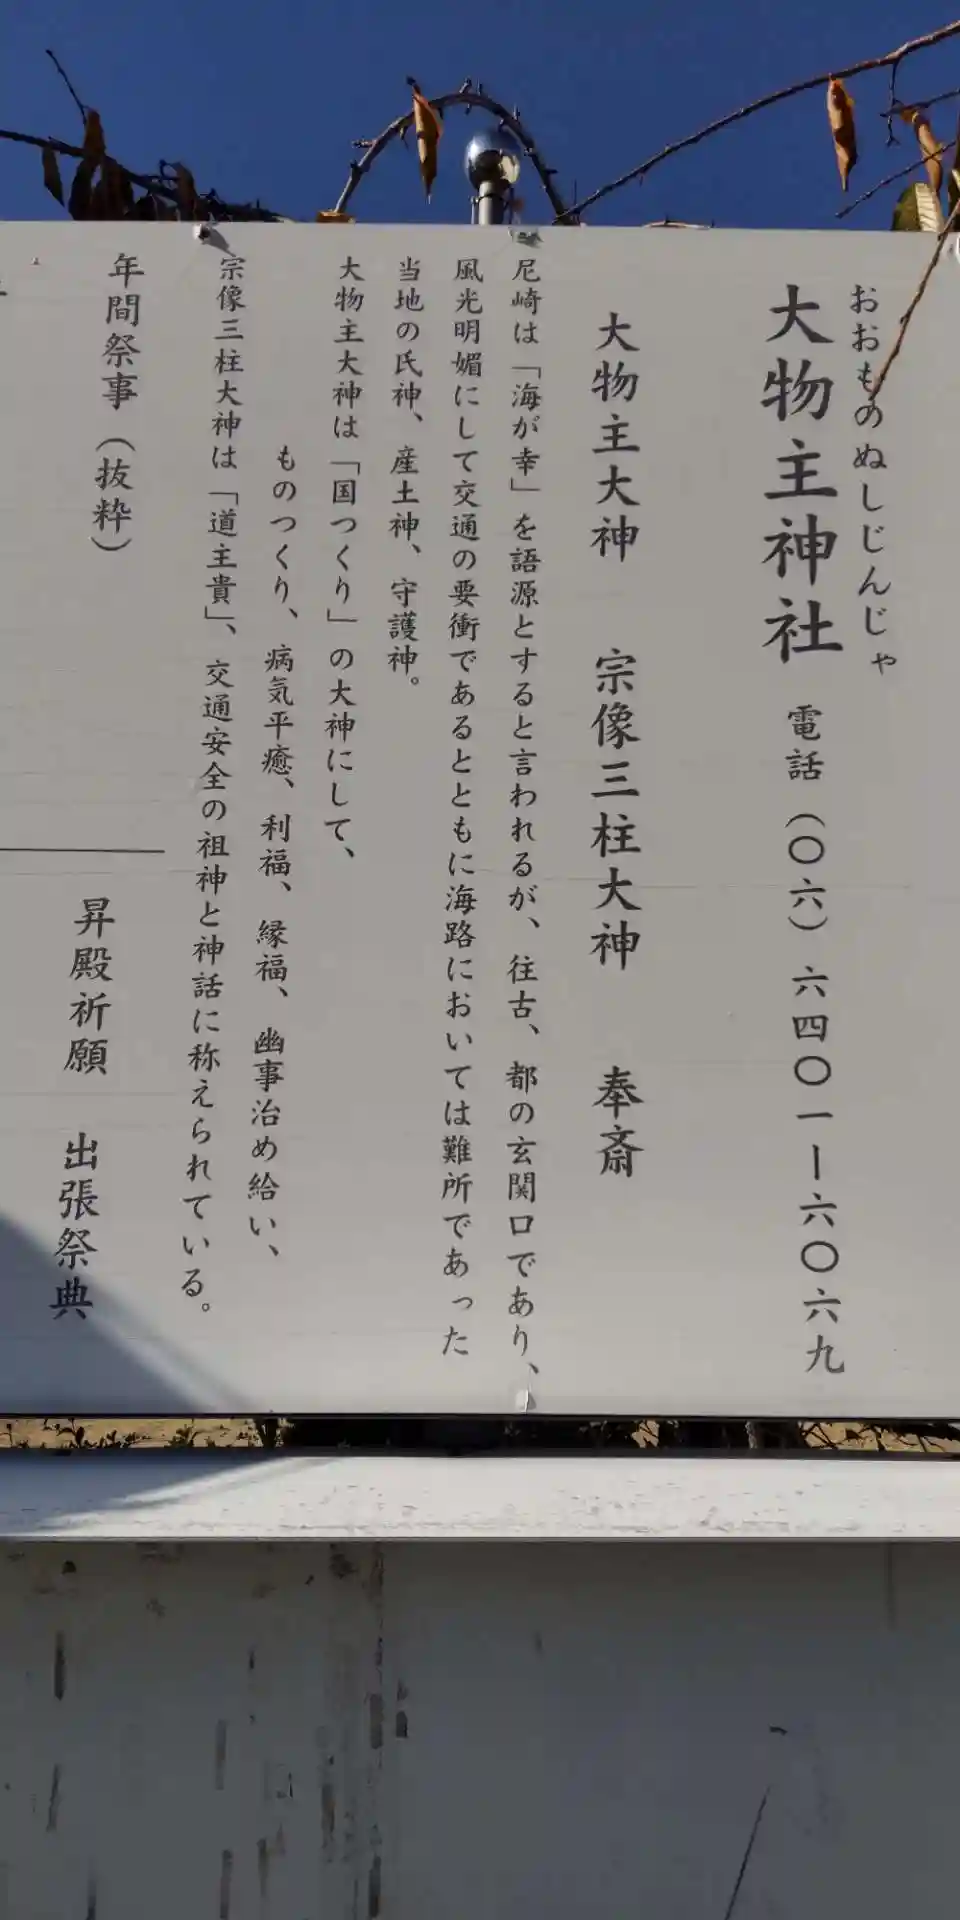 おおものぬしじんじゃ
大物主神社 電話(〇六)六四〇一ー六〇六九
大物主大神 宗像三柱大神 奉斎
尼崎は「海が幸」を語源とすると言われるが、往古、都の玄関口であり、
風光明媚にして交通の要衝であるとともに海路においては難所であった
当地の氏神、産土神、守護神。
大物主大神は「国つくり」の大神にして、
ものつくり、病気平癒、利福、縁福、幽事治め給い、
宗像三柱大神は「道主貴」、交通安全の祖神と神話に称えられている。
年間祭事(抜粋)
昇殿祈願 出張祭典